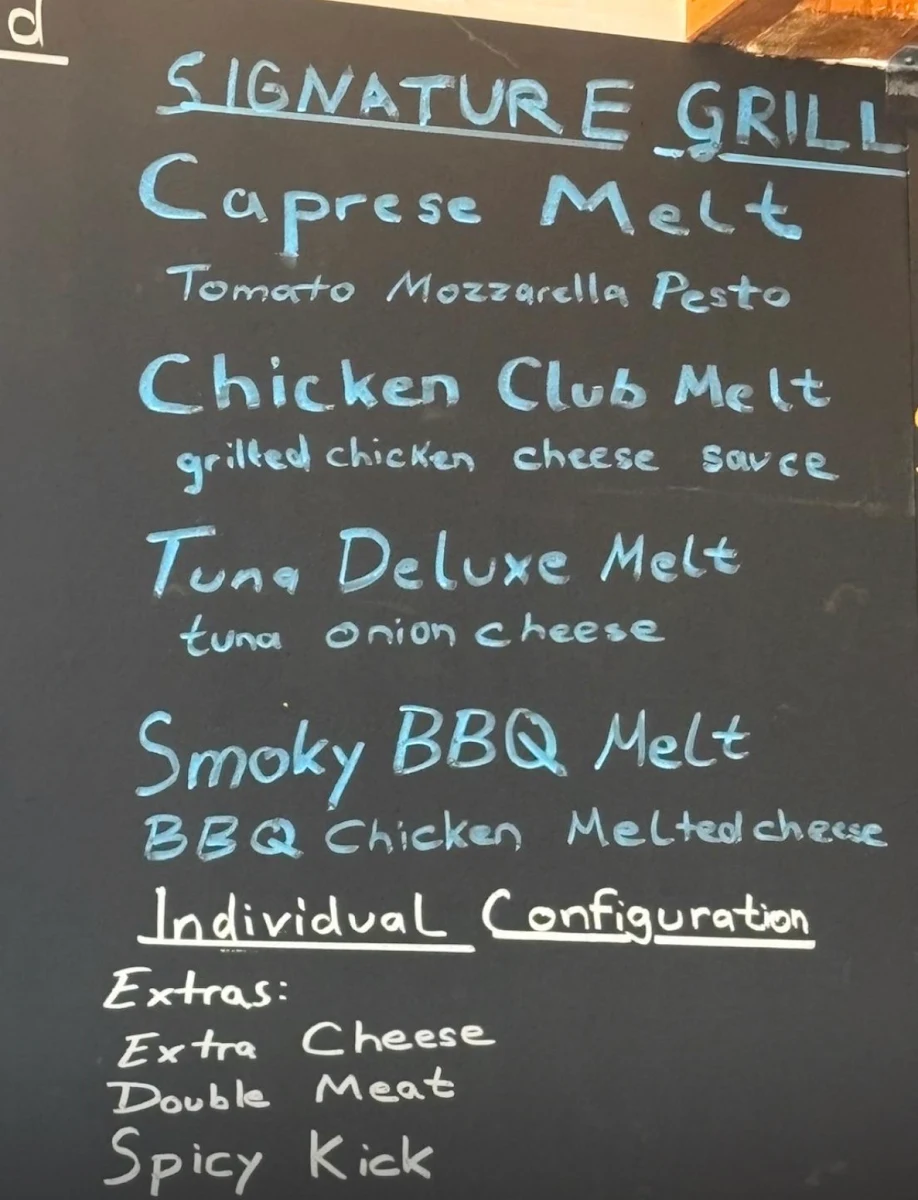 d
SIGNATURE GRILL
Caprese Melt
Tomato Mozzarella Pesto
Chicken Club Melt
grilled chicken cheese sauce
Tuna Deluxe Melt
tuna onion cheese
Smoky BBQ Melt
BBQ Chicken Melted cheese
Individual Configuration
Extras:
Extra Cheese
Double Meat
Spicy Kick